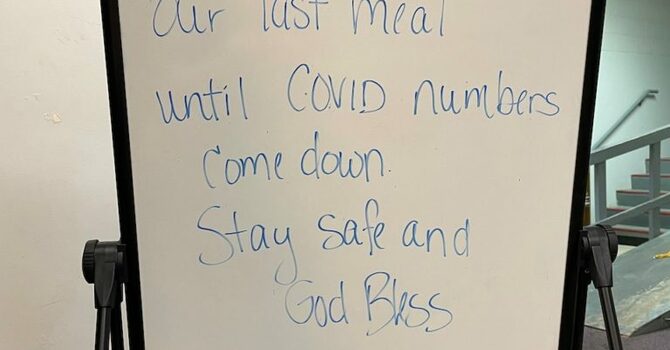 Our last meal
until COVID numbers
Come down.
Stay safe and
God Bless